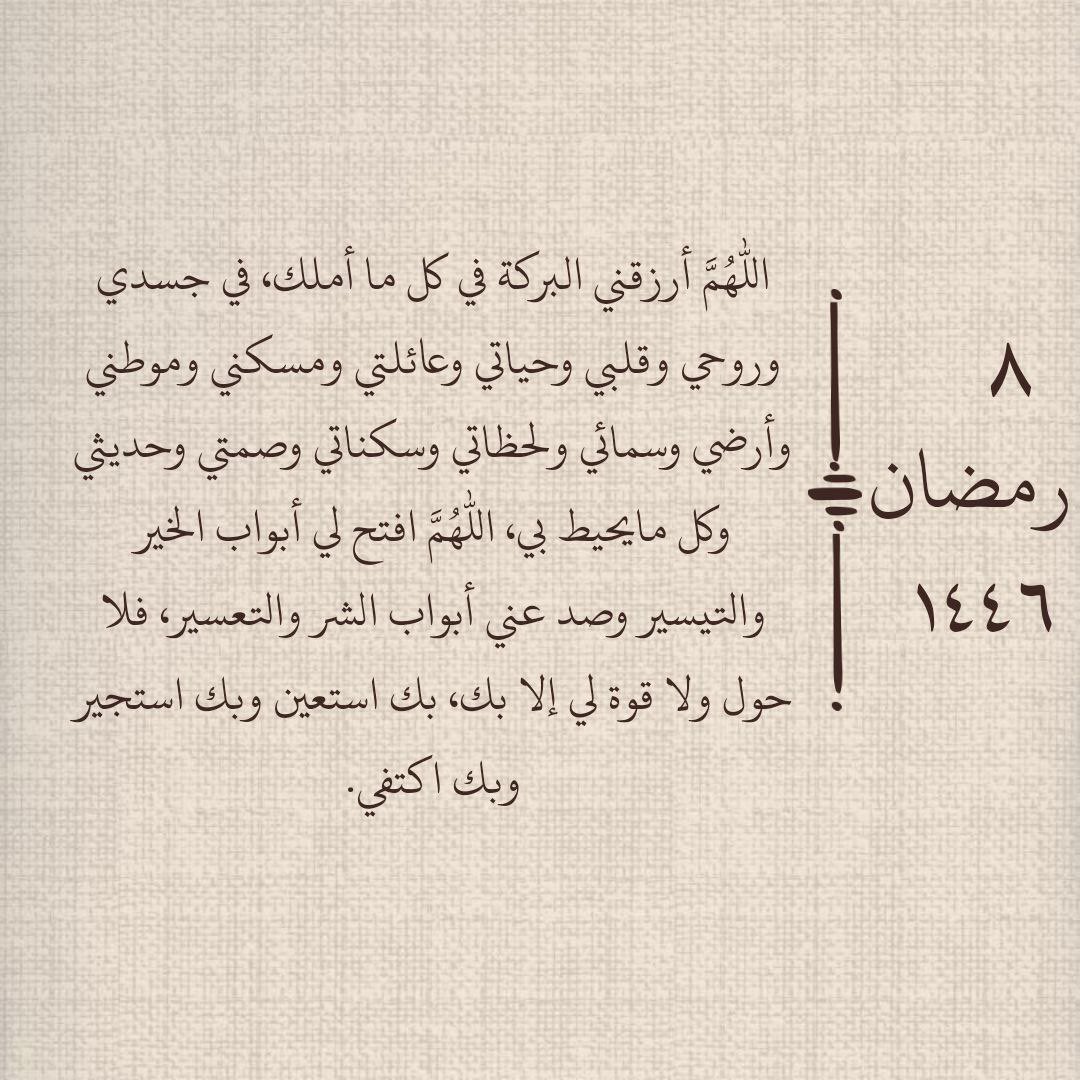 ٨
رمضان
١٤٤٦
اللّٰهُمَّ أرزقني البركة في كل ما أملك، في جسدي
وروحي وقلبي وحياتي وعائلتي ومسكني وموطني
وأرضي وسمائي ولحظاتي وسكناتي وصمتي وحديثي
وكل مايحيط بي، اللّٰهُمَّ افتح لي أبواب الخير
والتيسير وصد عني أبواب الشر والتعسير، فلا
حول ولا قوة لي إلا بك، بك استعين وبك استجير
وبك اكتفي.